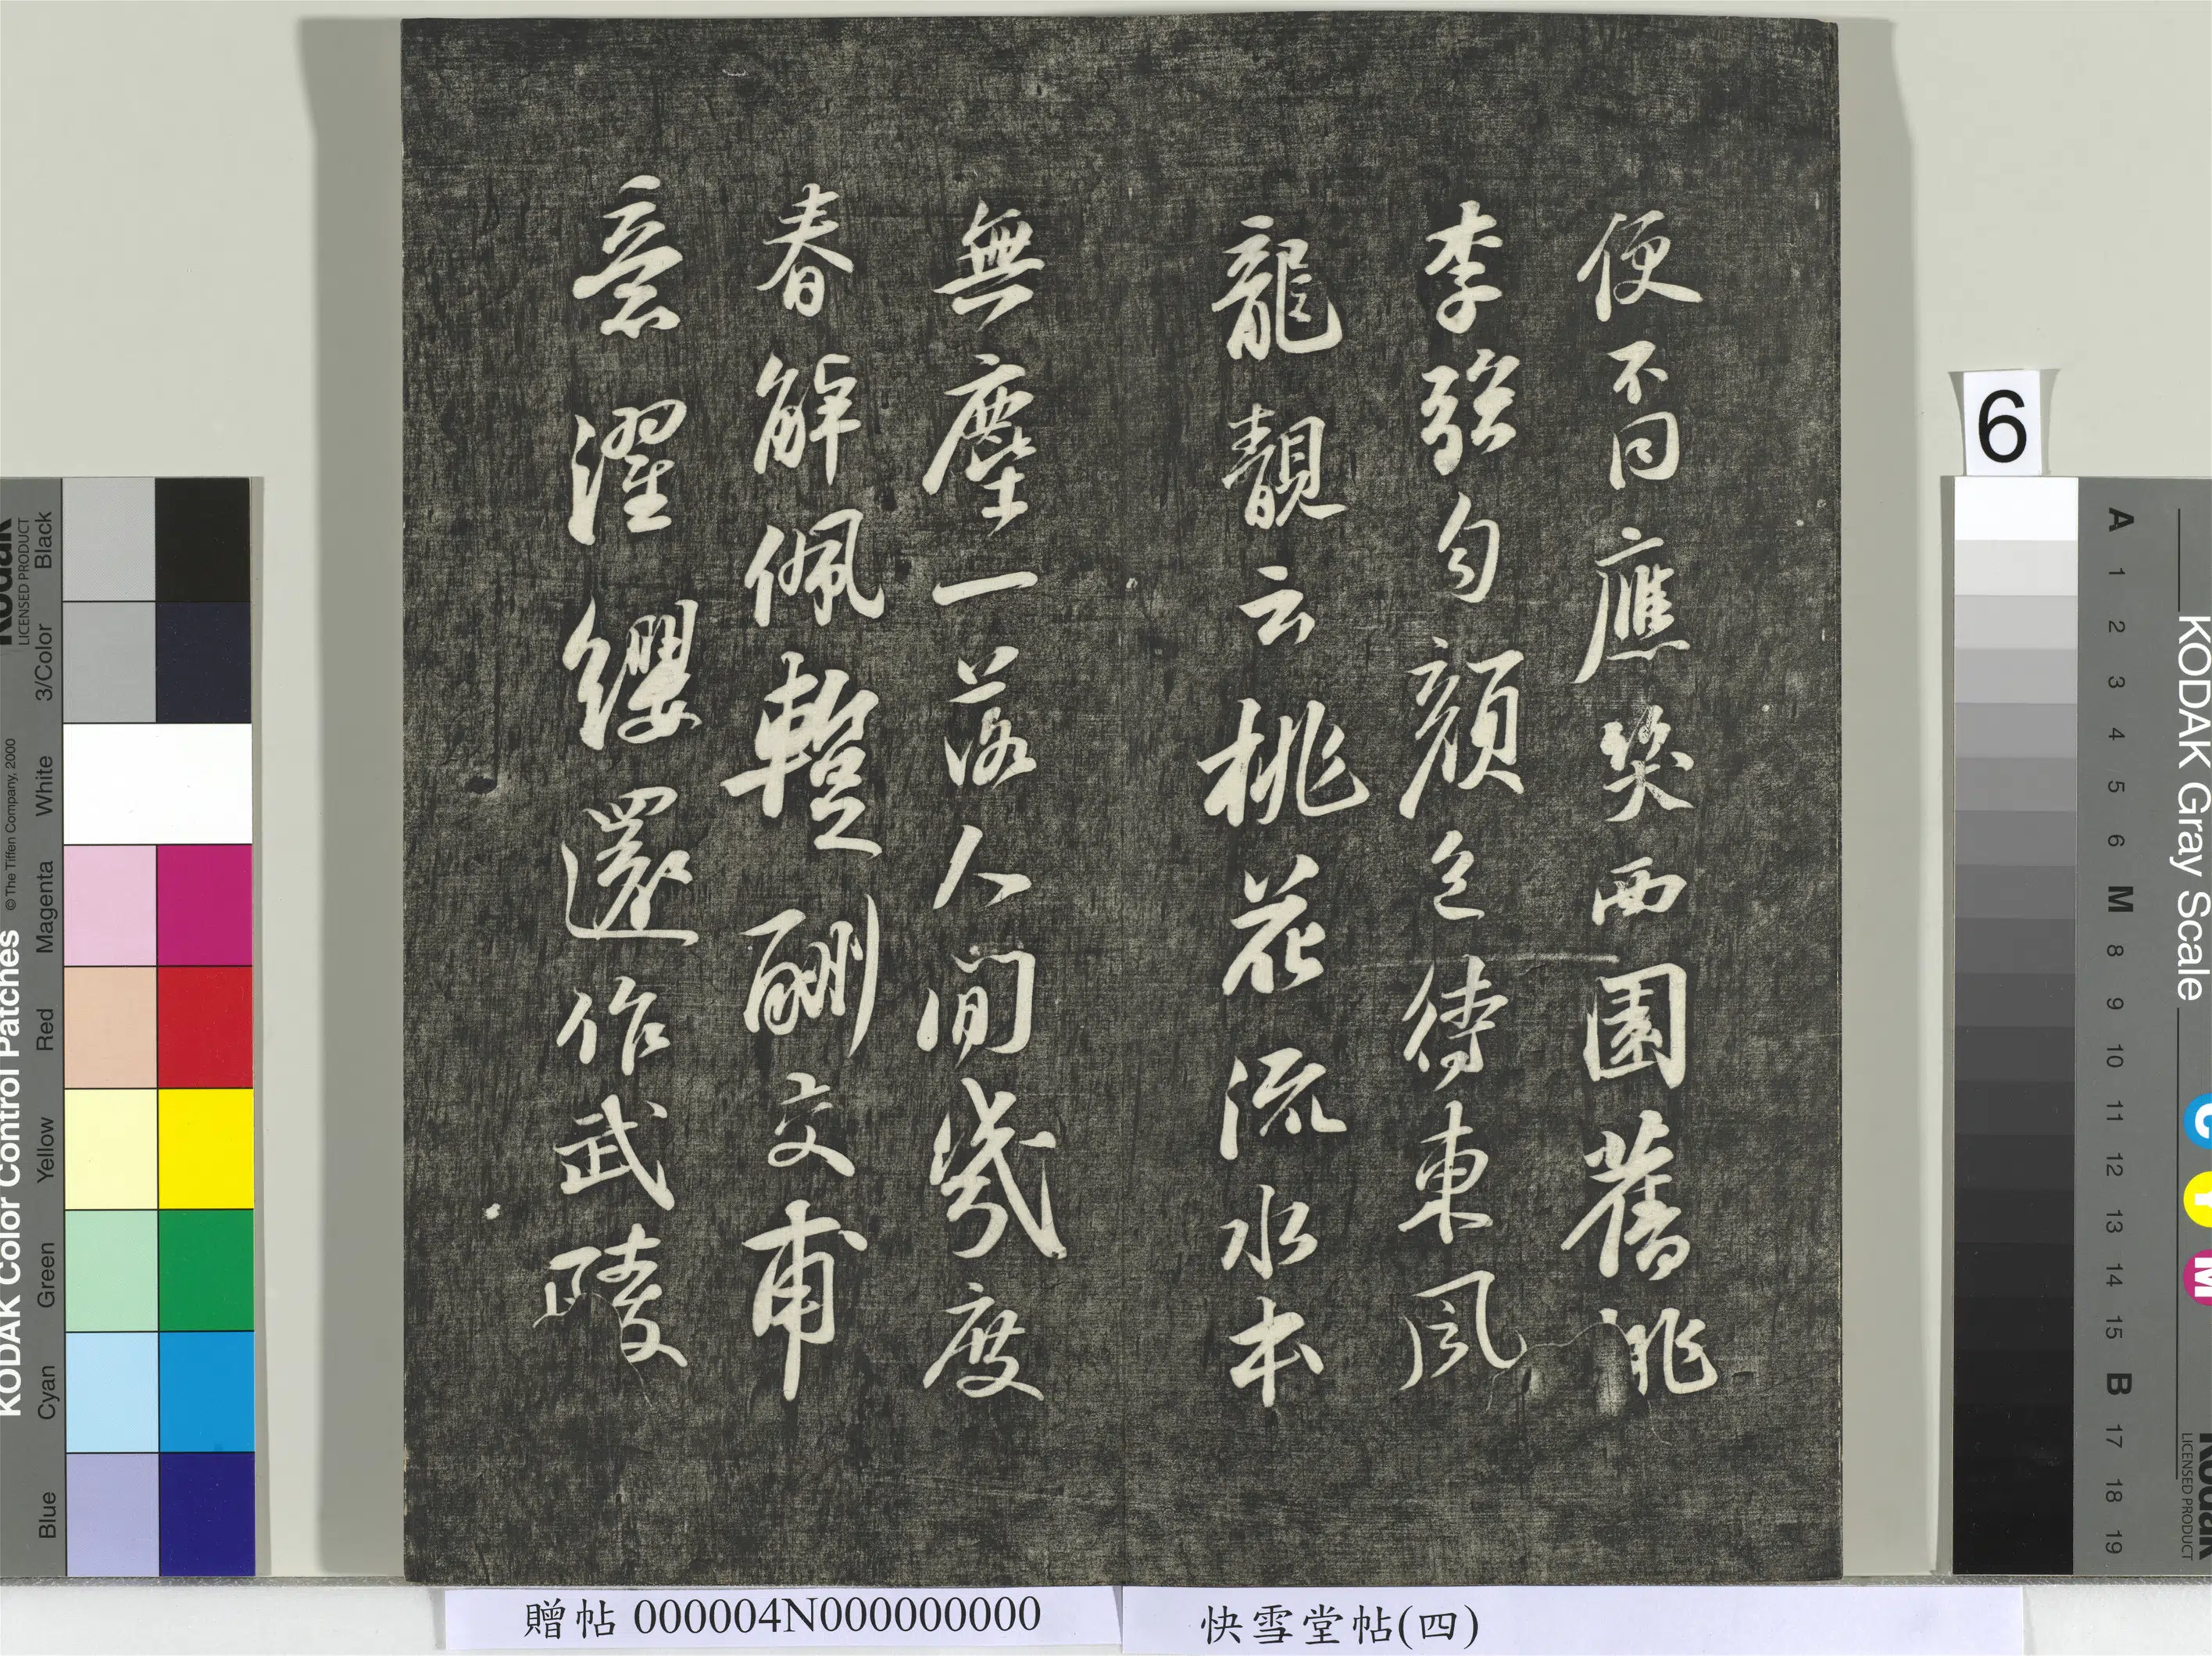 便不同應笑西園舊桃
李强勻顏色待東風
龍靚云桃花流水本
無塵一落人間幾度
春解佩蹔酬交甫
意濯纓還作武陵
贈帖 000004N000000000
快雪堂帖(四)
6
KODAK Color Control Patches
© The Tiffen Company, 2000
Kodak
LICENSED PRODUCT
Black
3/Color
White
Magenta
Red
Yellow
Green
Cyan
Blue
KODAK Gray Scale
C
Y
M
Kodak
LICENSED PRODUCT
A
1
2
3
4
5
6
M
8
9
10
11
12
13
14
15
B
17
18
19